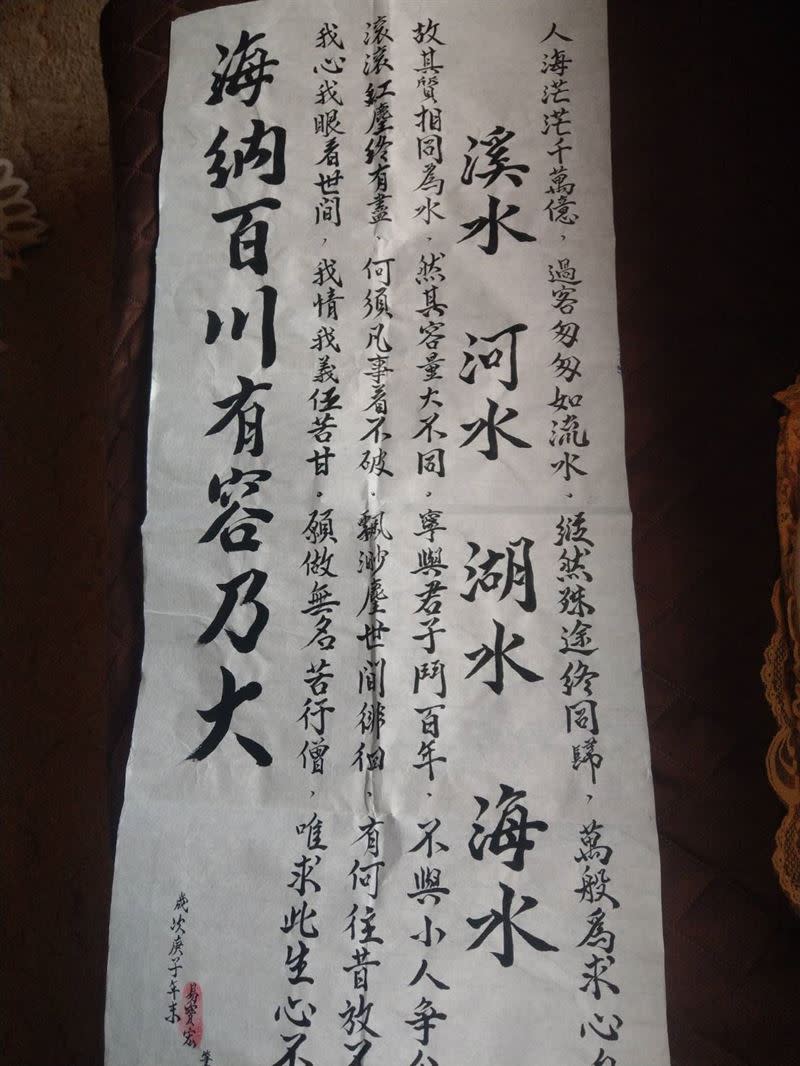 人海茫茫千萬億，過客匆匆如流水，縱然殊途終同歸，萬般為求心
溪水 河水 湖水 海水
故其質相同為水，然其容量大不同，寧與君子鬥百年，不與小人爭
滾滾紅塵終有盡，何須凡事看不破，飄渺塵世間徘徊，有何往昔放不
我心我眼看世间，我情我義伍苦甘，願做無名苦行僧，唯求此生心不
海納百川有容乃大
歲次庚子年末
易寶宏
筆